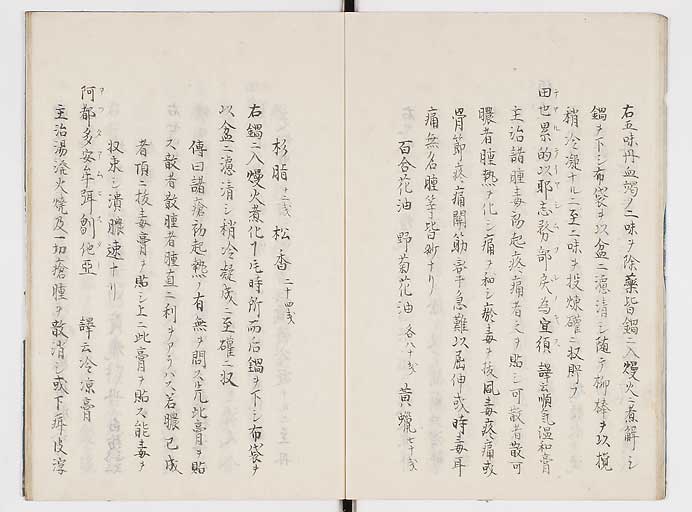 右五味丹血竭ノ二味ヲ除藥皆鍋ニ入熳火ニ煮解シ
鍋ヲ下シ布袋ヲ以盆ニ濾清シ隨テ柳棒ヲ以撹
稍冷凝ナルニ至二味ヲ投煉礶ニ収貯ヲ
田也黒的以耶志勢部戻為宜須 譯云順氣温和膏
主治諸腫毒初起疼痛者之ヲ貼シ可散者散可
膿者腫熱ヲ化シ痛ヲ和シ瘀毒ヲ抜風毒疼痛或
骨節疼痛關筋牽急難以屈伸或時毒耳
痛無名腫等皆妙ナリ
百合花油 野菊花油 各八十戔 黄蠟 七十戔
杉脂 十二戔 松香 二十四戔
右鍋ニ入熳火煮化一字時所而后鍋ヲ下シ布袋ヲ
以盆ニ濾清シ稍冷凝成ニ至礶ニ収
傳曰諸瘡初起熱ノ有無ヲ問ス凢此膏ヲ貼
ス散者散腫者腫直ニ利ヲアラハス若膿已成
者頂ニ抜毒膏ヲ貼シ上ニ此膏ヲ貼ス能毒ヲ
収束シ潰膿速ナリ
阿都多安牟弭芻佗亞 譯云冷凉膏
主治湯溌火燒及一切瘡腫ヲ散消シ或下疳皮淳